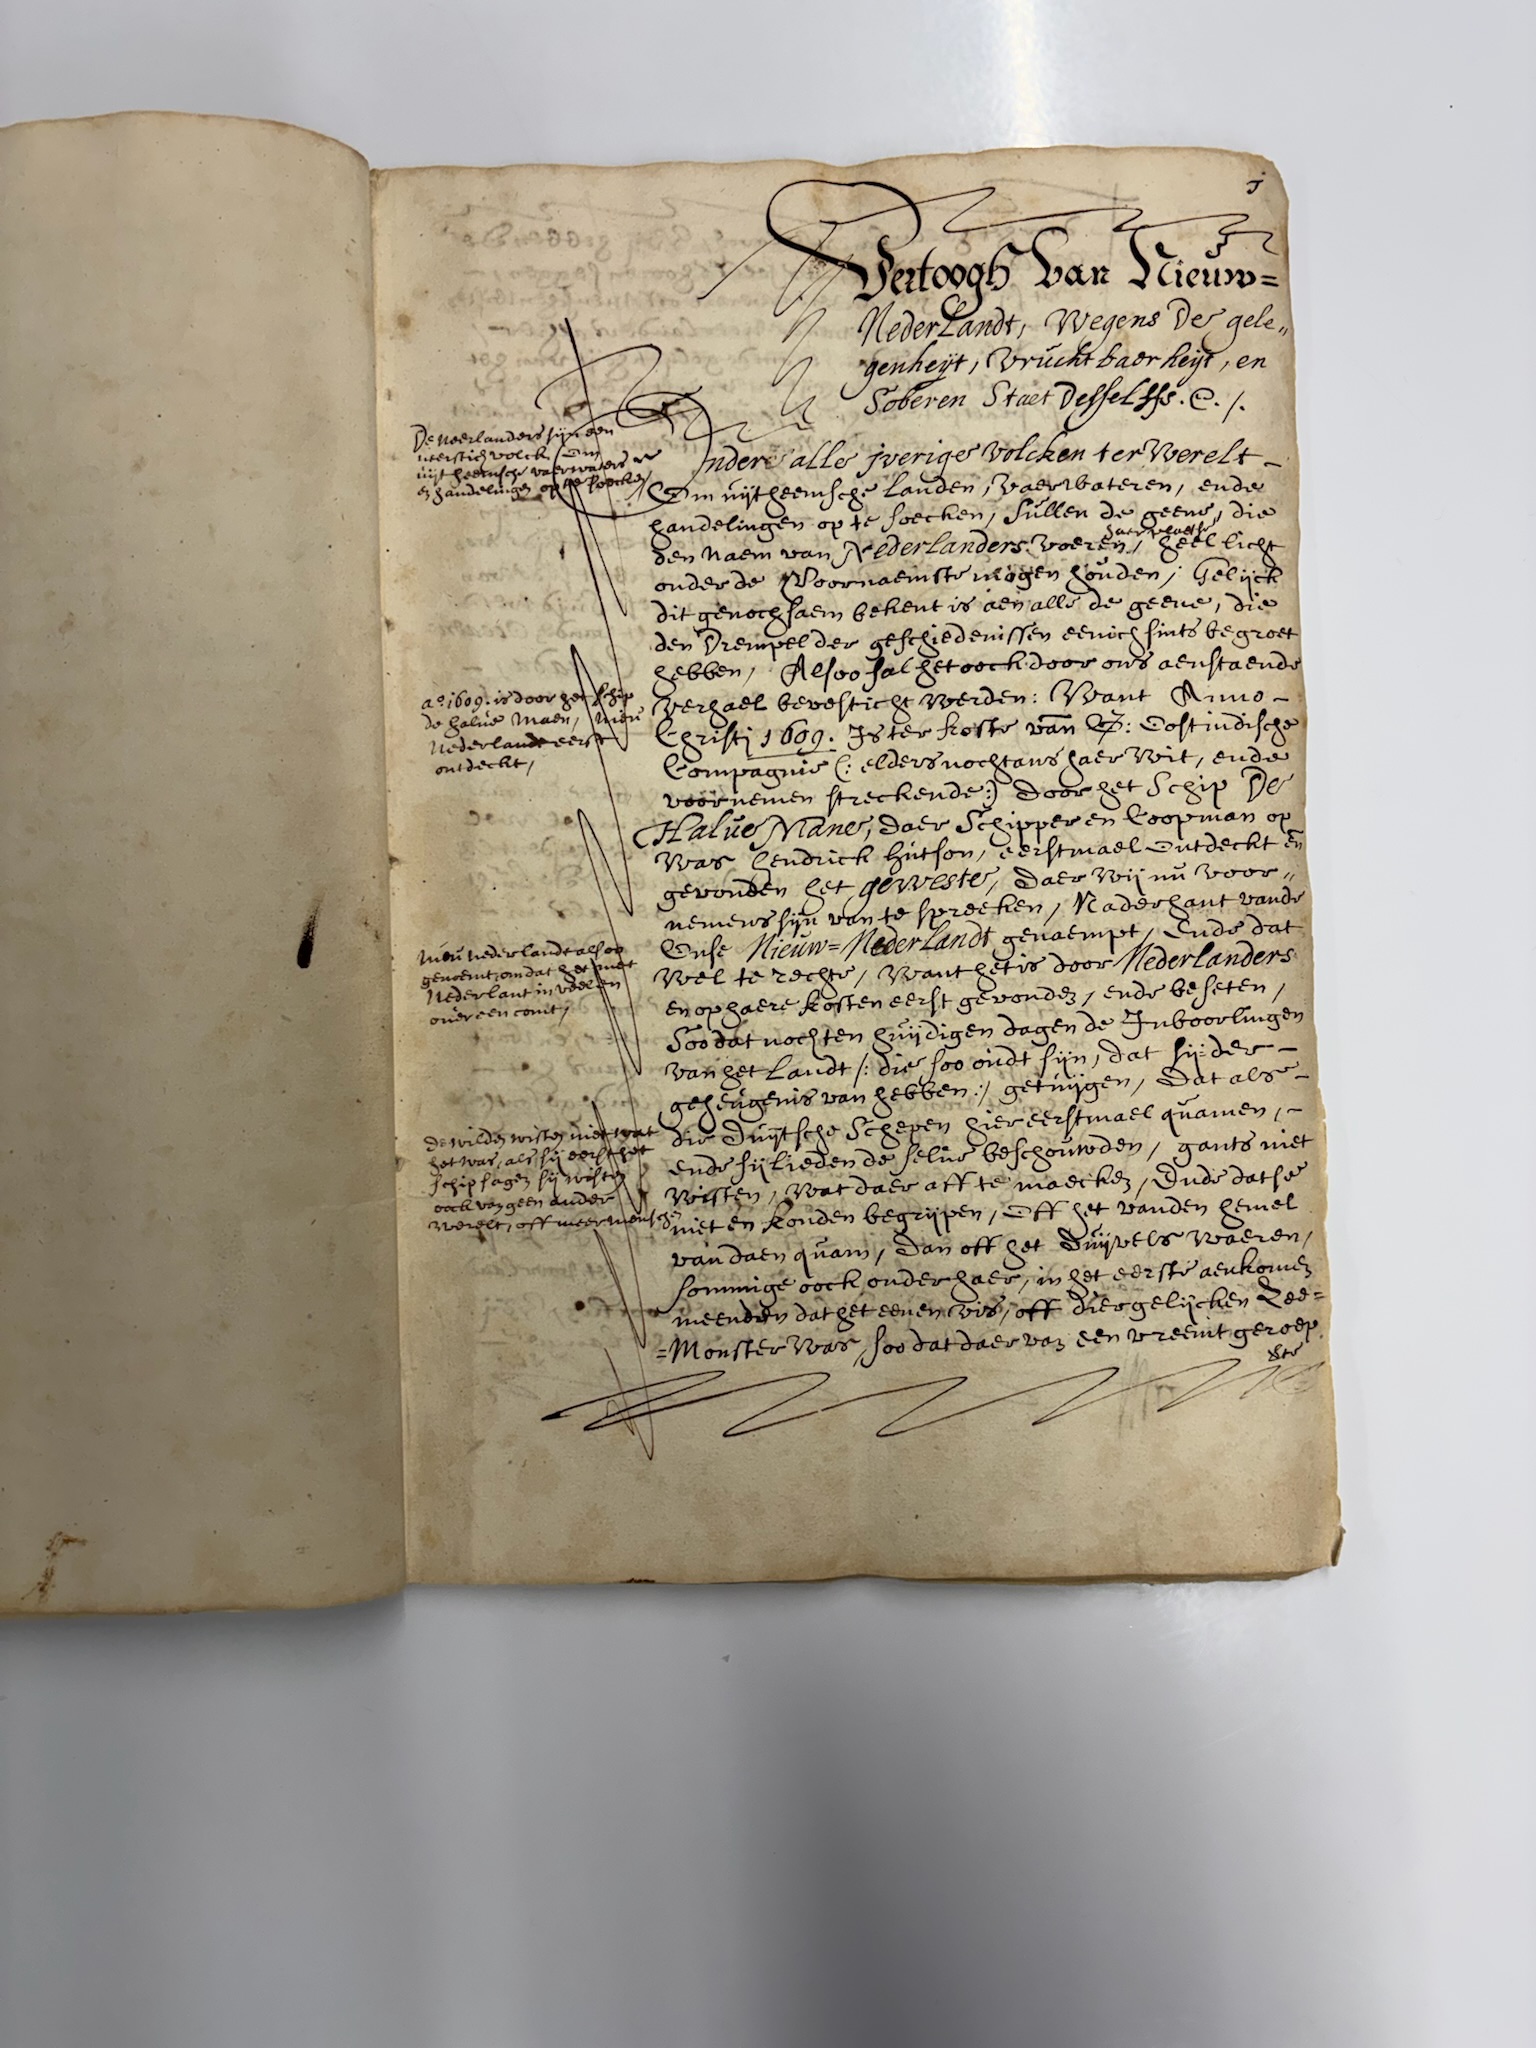 Vertoogh Van Nieuw=
NederLandt, Wegens De gele„
genheyt, Vruchtbaerheyt, en
Soberen Staet Desselffs. &. /.
De Neerlanders sijn een
neerstich volck Om
uijtheemsche vaerwaters
en handelingen op te soecken
Onder alle jverige Volcken ter Werelt –
Om uijtheemsche Landen, Vaerwateren, ende
handelingen op te soecken, sullen de geene, die
den Naem van Nederlanders voeren, haer plaetse heel licht
onder de Voornaemste mogen houden, Gelijck
dit genochsaem bekent is aen alle de geene, die
den Drempel der geschiedenissen eenichsints begroet
hebben, Alsoo sal het oock door ons aenstaende
verhael bevesticht werden: Want Anno –
Christj 1609. Is ter koste van G: Oostindische
Compagnie (: elders nochtans haer Wit, ende
voornemen streckende:) Door het Schip De
Halue Mane, daer Schipper en Coopman op
Was Hendrick Hutson, eerstmael Ontdeckt en
gevonden het geweste, Daer Wij nu voor„
nemens sijn van te spreecken, Naderhant vande
Onse Nieuw=Nederlandt genaempt, Ende dat
Wel te rechte, Want het is door Nederlanders
en op haere kosten eerst gevonden, ende beseten,
Soo dat noch ten huijdigen dagen de Inboorlingen
van het Landt /: die soo oudt sijn, dat sij der –
geheugenis van hebben :/ getuijgen, Dat als –
die Duijtsche Schepen hier eerstmael quamen, –
ende sijlieden de selue beschouwden, gants niet
Wisten, Wat daer aff te maecken, Ende datse
niet en konden begrijpen, Off het vanden hemel
van daen quam, Dan off het Duijvels Waeren,
Sommige oock onder haer, in het eerste aenkomen
meenden dat het eenen vis, off diergelijcken Zee=
=Monster Was, soo dat daer van een vreemt geroep
a.o 1609. is door het schip
de halue maen, Nieu
Nederlandt eerst
ontdeckt,
Nieu Nederlandt alsoo
genoemt, omdat het met
Nederlant in veelen
ouer een comt,
de wilden wisten niet wat
het was, als sij eerst het
schip sagen sij wisten
oock van geen ander
Werelt, off meer menschen